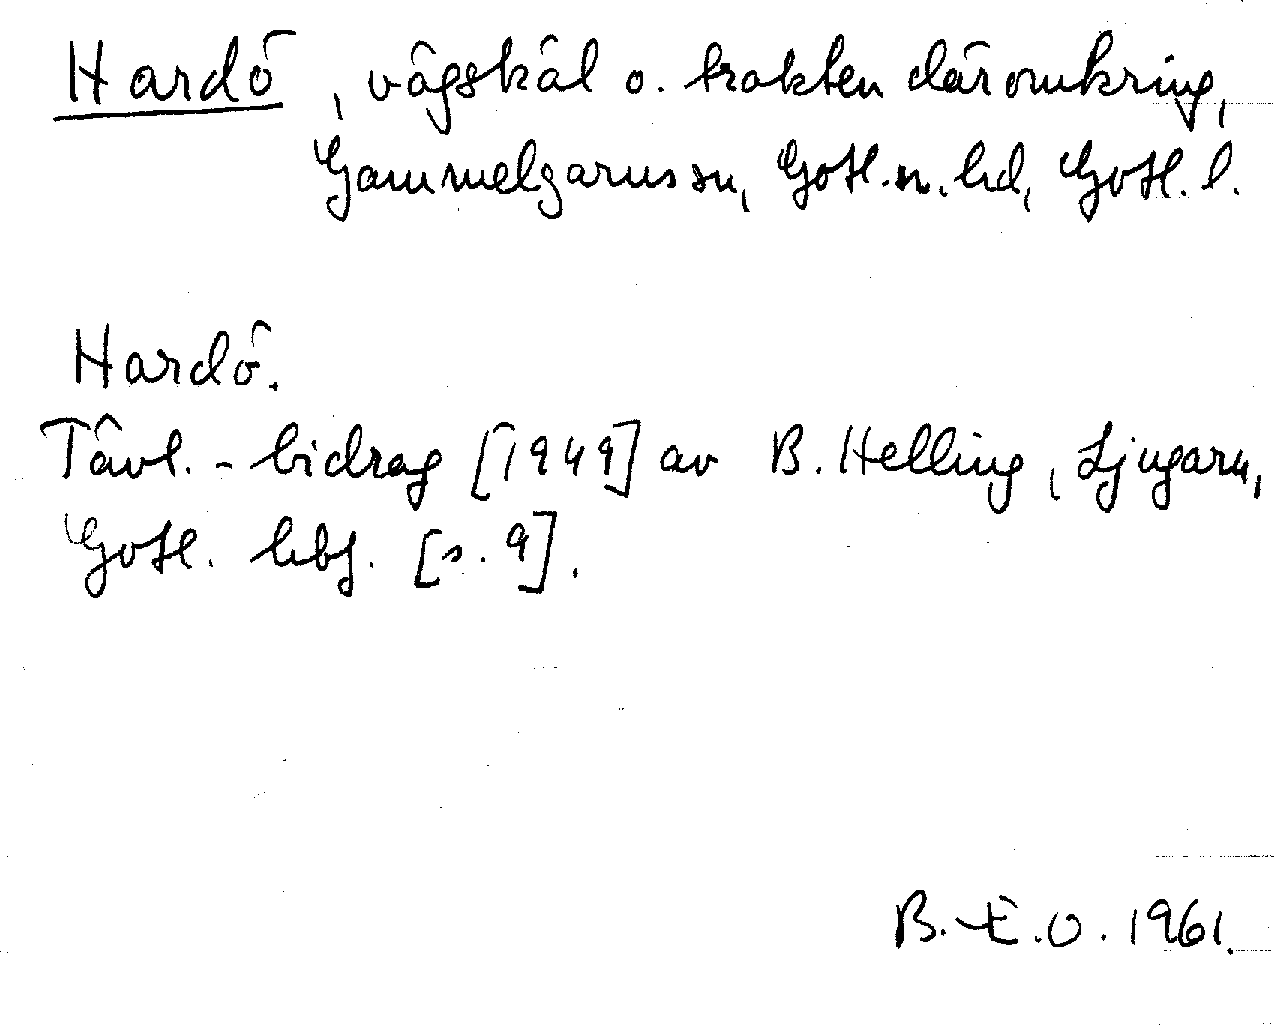 Hardö, vägskäl o. trakten däromkring,
Gammelgarns sn, Gotl. n. hd, Gotl. l.
Hardö.
Tävl.-bidrag [1949] av B. Helling, Ljugarn,
Gotl. hbf. [s. 9].
B. E. O. 1961.